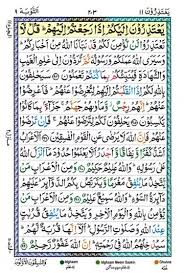 یَعْتَذِرُوْنَ ١١ ٢٠٣ اَلتَّوْبَة ٩
يَعْتَذِرُوْنَ اِلَيْكُمْ اِذَا رَجَعْتُمْ اِلَيْهِمْ ؕ قُلْ لَّا
تَعْتَذِرُوْا لَنْ نُّؤْمِنَ لَكُمْ قَدْ نَبَّاَنَا اللّٰهُ مِنْ اَخْبَارِكُمْ ؕ
وَسَيَرَى اللّٰهُ عَمَلَكُمْ وَرَسُوْلُهٗ ثُمَّ تُرَدُّوْنَ اِلٰى عٰلِمِ
الْغَيْبِ وَالشَّهَادَةِ فَيُنَبِّئُكُمْ بِمَا كُنْتُمْ تَعْمَلُوْنَ سَيَحْلِفُوْنَ
بِاللّٰهِ لَكُمْ اِذَا انْقَلَبْتُمْ اِلَيْهِمْ لِتُعْرِضُوْا عَنْهُمْ ؕ فَاَعْرِضُوْا
عَنْهُمْ ؕ اِنَّهُمْ رِجْسٌ وَّمَاْوٰىهُمْ جَهَنَّمُ جَزَآءًۢ بِمَا كَانُوْا
يَكْسِبُوْنَ يَحْلِفُوْنَ لَكُمْ لِتَرْضَوْا عَنْهُمْ فَاِنْ تَرْضَوْا
عَنْهُمْ فَاِنَّ اللّٰهَ لَا يَرْضٰى عَنِ الْقَوْمِ الْفٰسِقِيْنَ اَلْاَعْرَابُ
اَشَدُّ كُفْرًا وَّنِفَاقًا وَّاَجْدَرُ اَلَّا يَعْلَمُوْا حُدُوْدَ مَآ اَنْزَلَ
اللّٰهُ عَلٰى رَسُوْلِهٖ ؕ وَاللّٰهُ عَلِيْمٌ حَكِيْمٌ وَمِنَ الْاَعْرَابِ مَنْ
يَّتَّخِذُ مَا يُنْفِقُ مَغْرَمًا وَّيَتَرَبَّصُ بِكُمُ الدَّوَآئِرَ ؕ عَلَيْهِمْ
دَآئِرَةُ السَّوْءِ ؕ وَاللّٰهُ سَمِيْعٌ عَلِيْمٌ وَمِنَ الْاَعْرَابِ مَنْ يُّؤْمِنُ
بِاللّٰهِ وَالْيَوْمِ الْاٰخِرِ وَيَتَّخِذُ مَا يُنْفِقُ قُرُبٰتٍ عِنْدَ
اللّٰهِ وَصَلَوٰتِ الرَّسُوْلِ ؕ اَلَآ اِنَّهَا قُرْبَةٌ لَّهُمْ ؕ سَيُدْخِلُهُمُ
اللّٰهُ فِيْ رَحْمَتِهٖ ؕ اِنَّ اللّٰهَ غَفُوْرٌ رَّحِيْمٌ